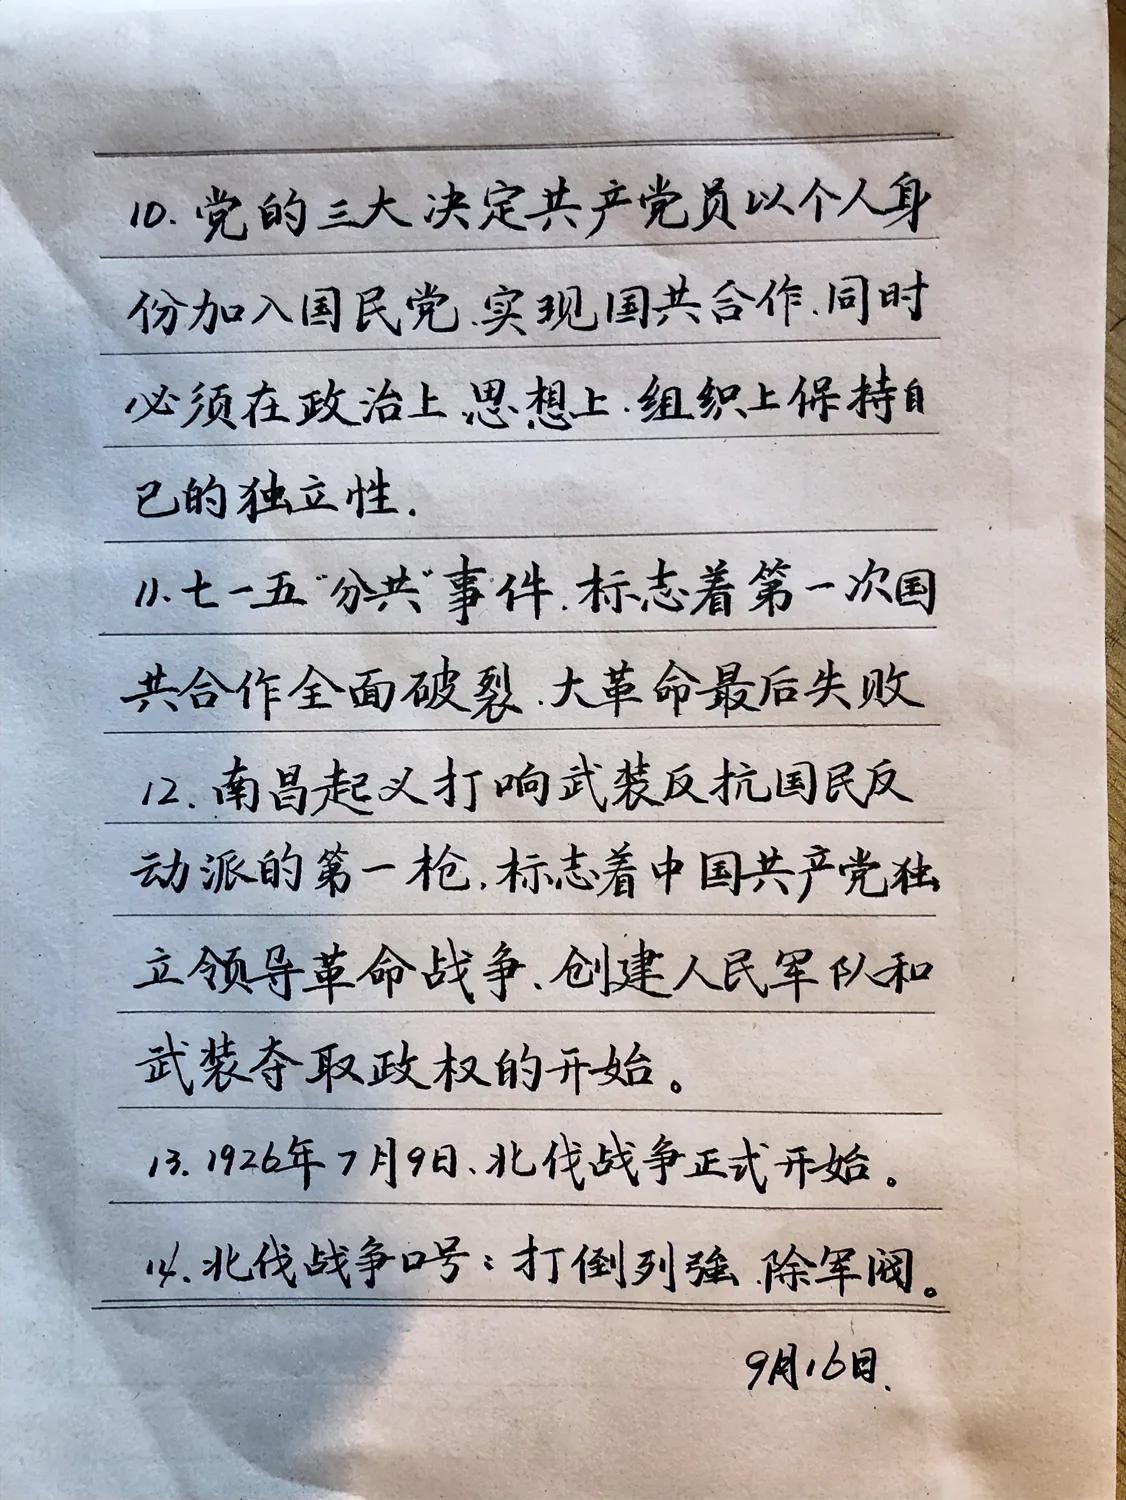 10.党的三大决定共产党员以个人身
份加入国民党、实现国共合作、同时
必须在政治上、思想上、组织上保持自
己的独立性.
11.七一五"分共"事件、标志着第一次国
共合作全面破裂、大革命最后失败
12.南昌起义打响武装反抗国民反
动派的第一枪、标志着中国共产党独
立领导革命战争、创建人民军队和
武装夺取政权的开始。
13.1926年7月9日、北伐战争正式开始。
14.北伐战争口号:打倒列强、除军阀。
9月16日.